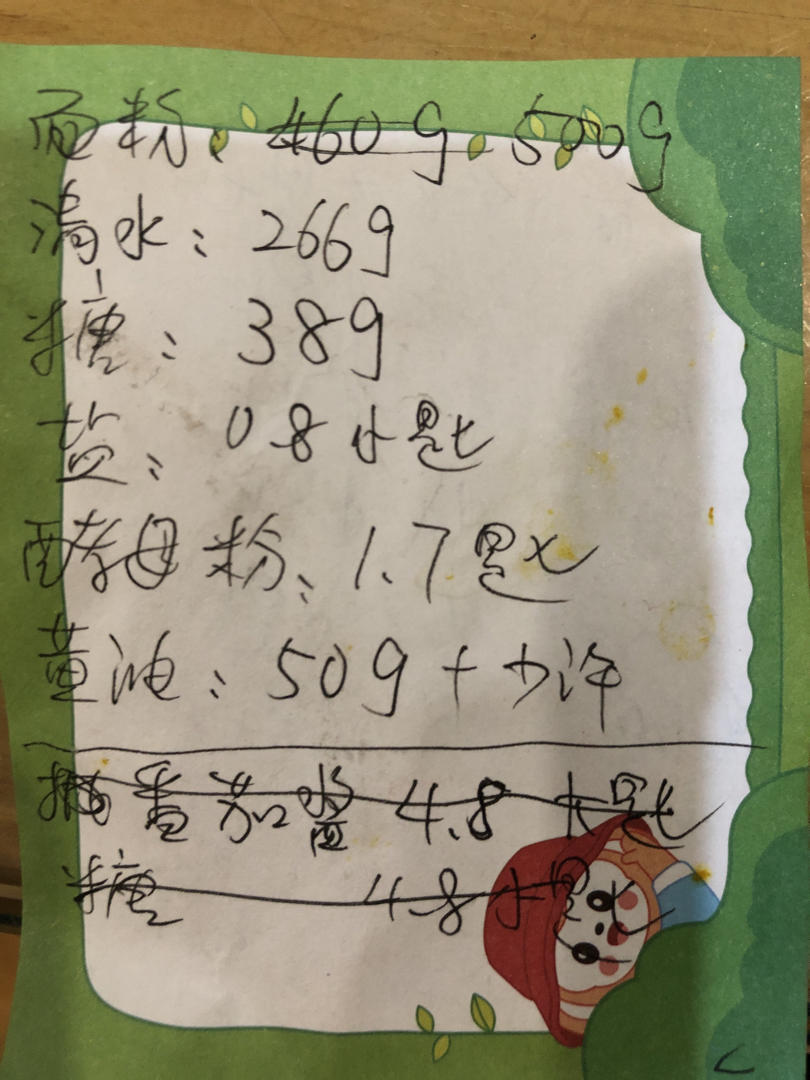 面粉: 460g 500g
清水: 266g
糖: 38g
盐: 0.8小匙
酵母粉: 1.7匙
黄油: 50g+少许
番茄酱 4.8大匙
糖 4.8小匙